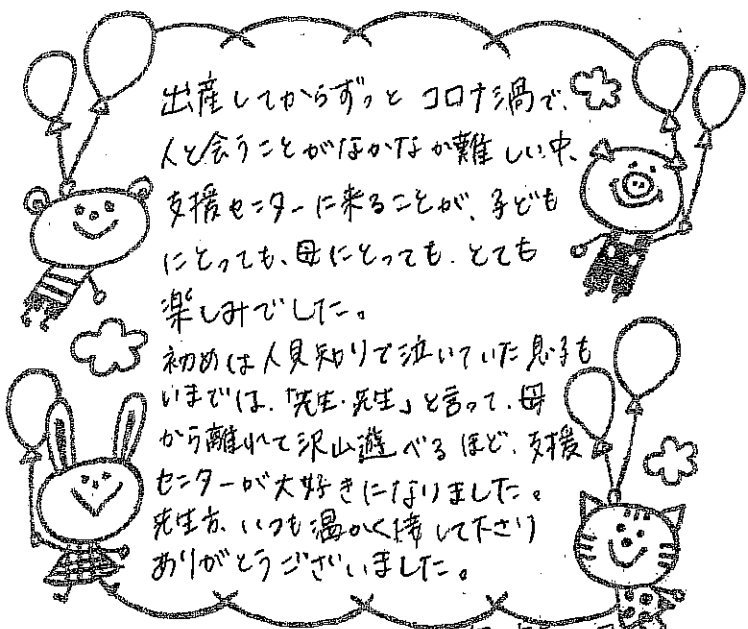 出産してからずっと コロナ渦で、
人と会うことがなかなか難しい中、
支援センターに来ることが、子ども
にとっても、母にとっても、とても
楽しみでした。
初めは人見知りで泣いていた息子も
いまでは、「先生・先生」と言って、母
から離れて沢山遊べるほど、支援
センターが大好きになりました。
先生方、いつも温かく接して下さり
ありがとうございました。